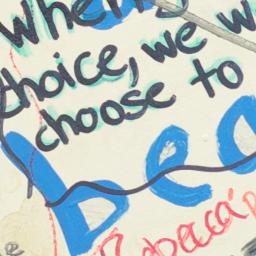 when
choice, we w
choose to
bea
Rebecca